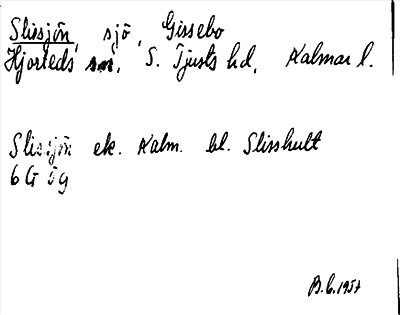 Slissjön, sjö, Gissebo
Hjorteds sn, S. Tjusts hd, Kalmar l.
Slissjön ek. Kalm. bl. Slisshult
6G ög
B.C. 1957